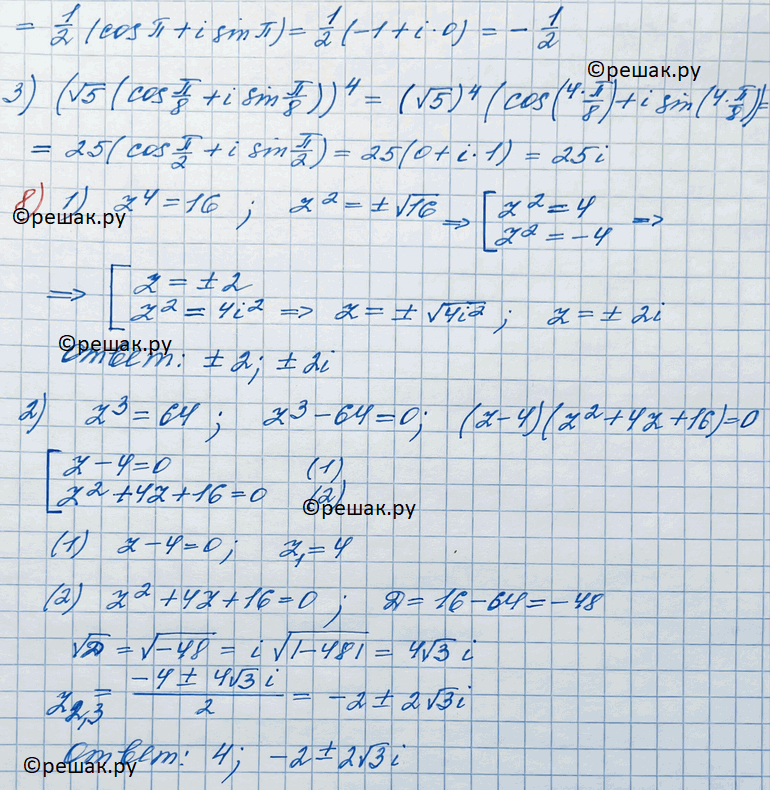 = 1/2 (cos π + i sin π) = 1/2 (-1 + i·0) = - 1/2
©решак.ру
3) (√5 (cos π/8 + i sin π/8))⁴ = (√5)⁴ (cos(4·π/8) + i sin(4·π/8)) =
= 25(cos π/2 + i sin π/2) = 25(0 + i·1) = 25i
8) 1) z⁴ = 16 ; z² = ±√16 ⇒ [ z² = 4 z² = -4 ⇒
©решак.ру
⇒ [ z = ±2
z² = 4i² ⇒ z = ±√4i² ; z = ±2i
©решак.ру
Ответ: ±2; ±2i
2) z³ = 64 ; z³ - 64 = 0; (z-4)(z² + 4z + 16) = 0
[ z - 4 = 0 (1)
z² + 4z + 16 = 0 (2)
©решак.ру
(1) z - 4 = 0 ; z₁ = 4
(2) z² + 4z + 16 = 0 ; D = 16 - 64 = -48
√D = √-48 = i √|-48| = 4√3 i
z₂,₃ = (-4 ± 4√3 i)/2 = -2 ± 2√3 i
Ответ: 4; -2 ± 2√3 i
©решак.ру